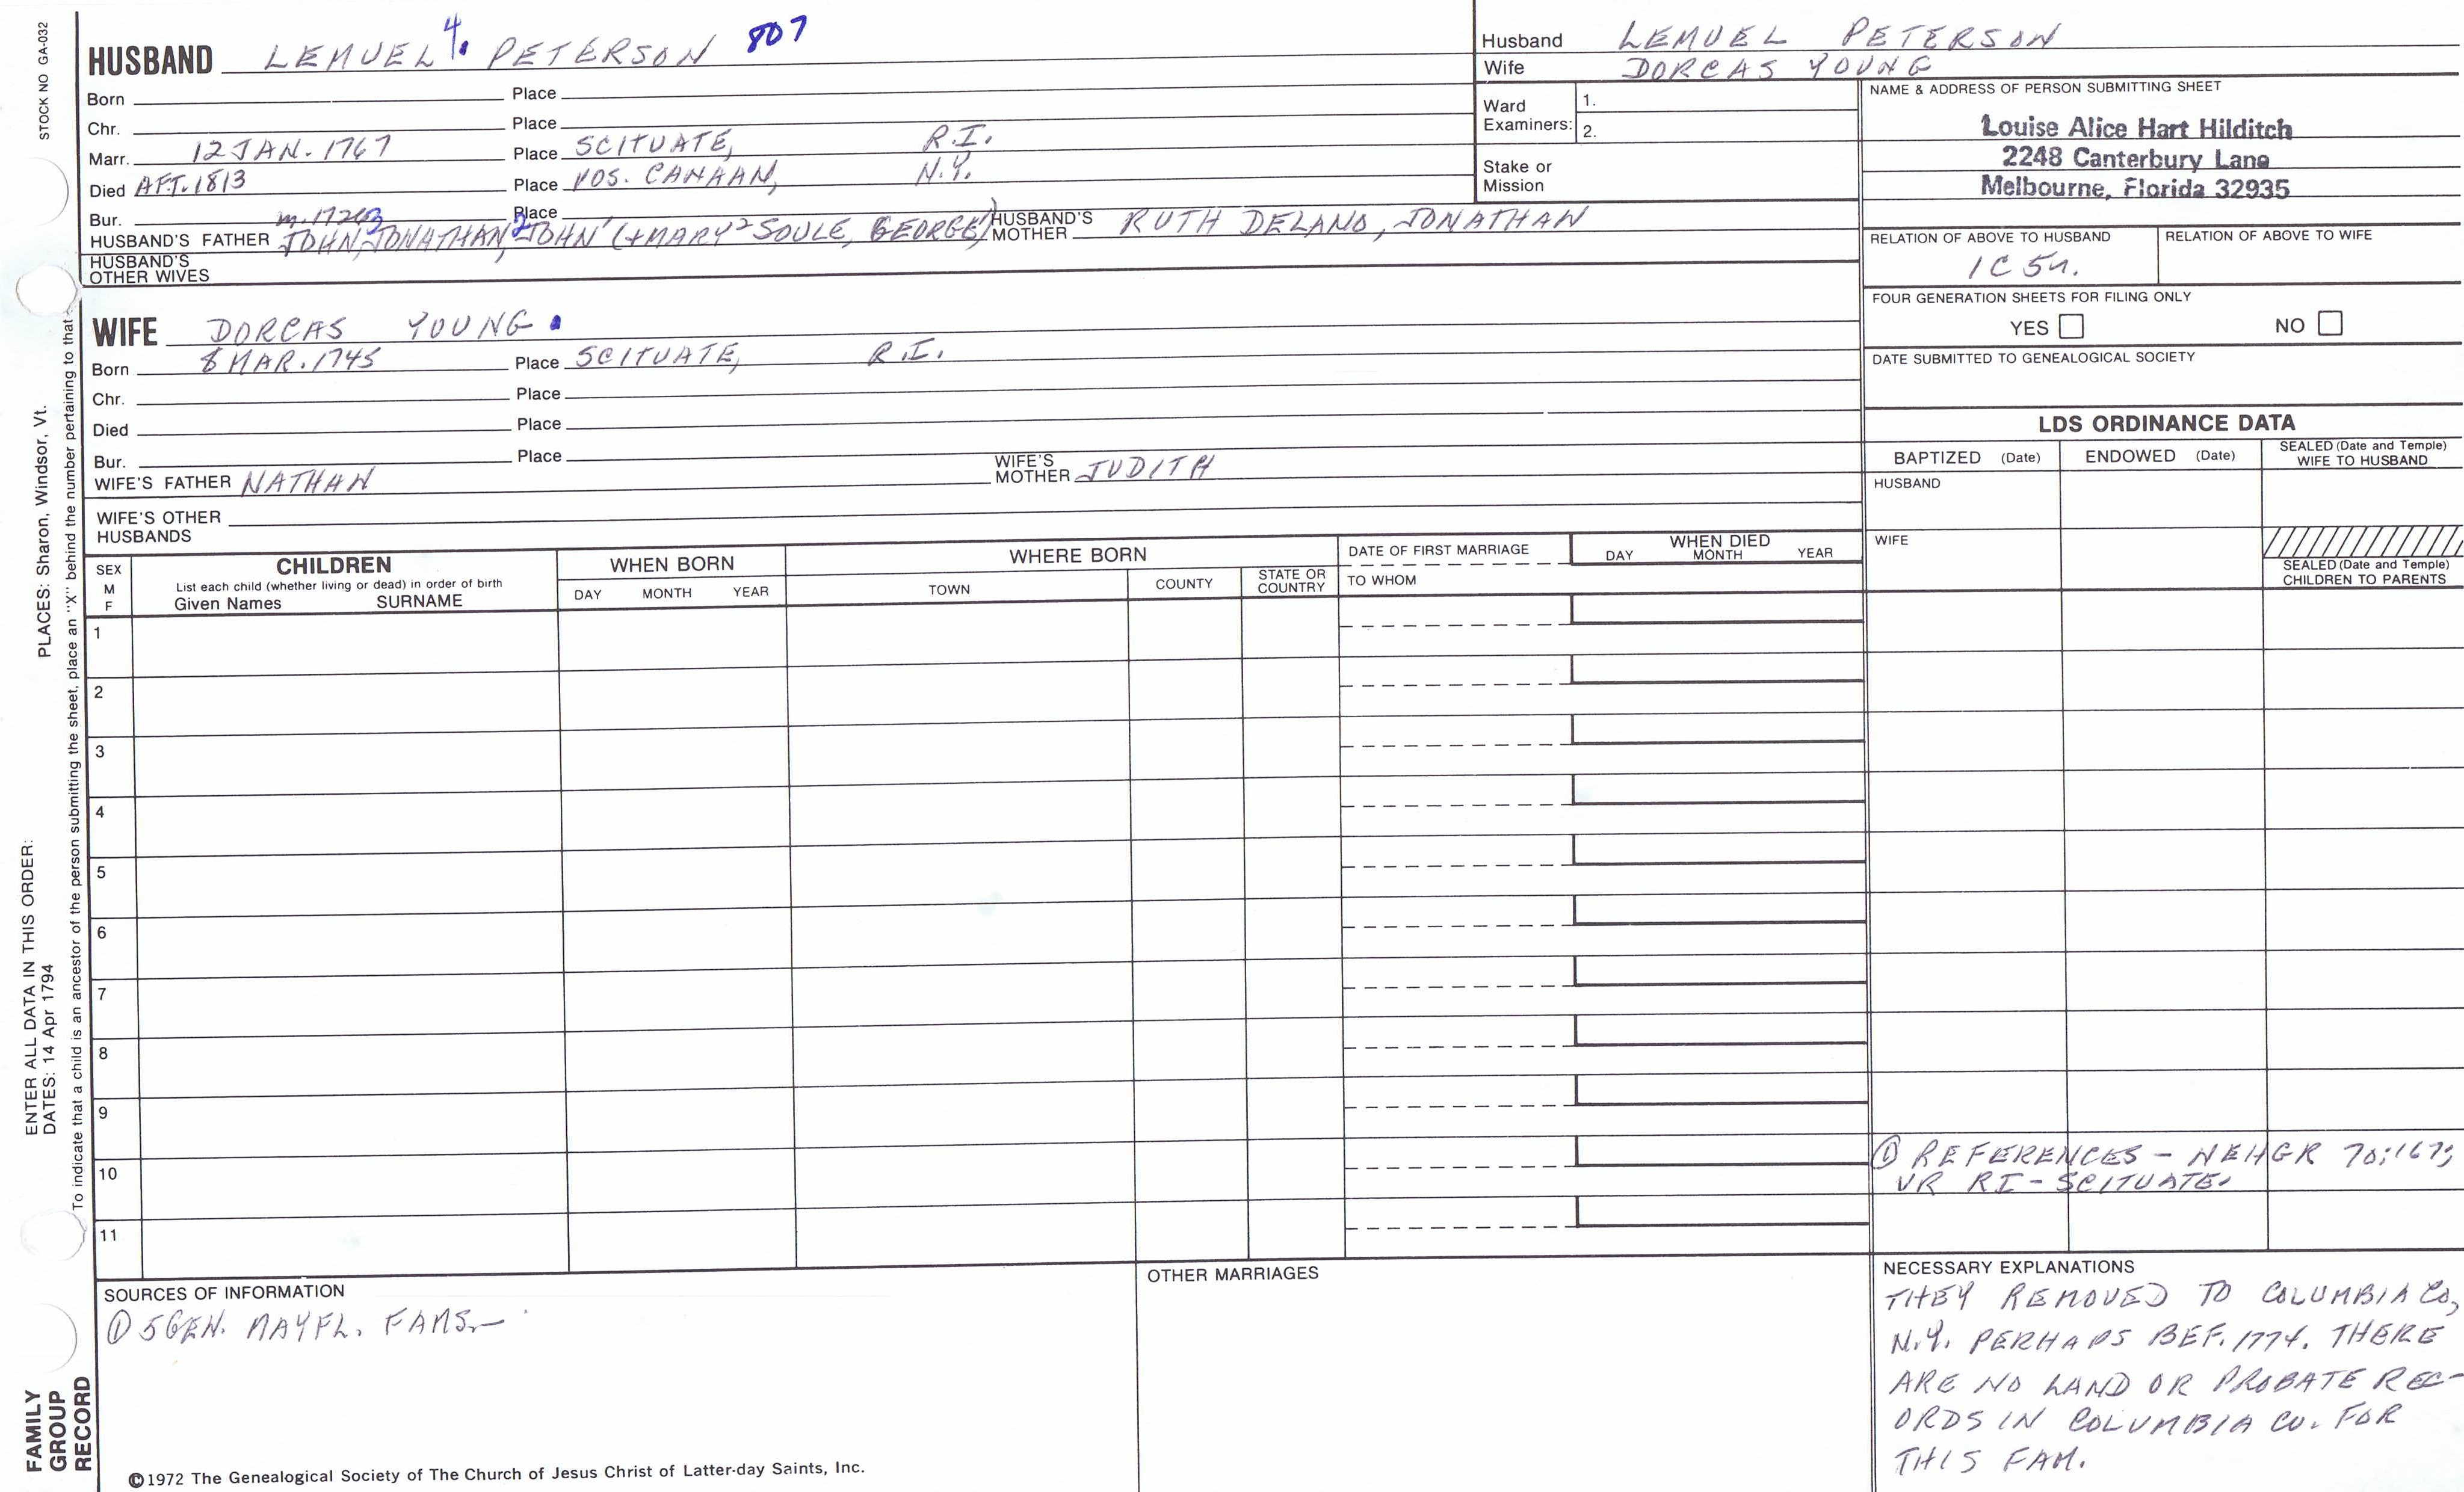 STOCK NO GA-032
HUSBAND LEMUEL 4. PETERSON 807
Born Place
Chr. Place
Marr. 12 JAN. 1767 Place SCITUATE, R.I.
Died AFT. 1813 Place POS. CANAAN, N.Y.
Bur. Place
HUSBAND'S FATHER JOHN, JONATHAN, 2 JOHN 1 (+ MARY 2 SOULE, GEORGE) HUSBAND'S MOTHER RUTH DELANO, JONATHAN
HUSBAND'S OTHER WIVES
Husband LEMUEL PETERSON
Wife DORCAS YOUNG
Ward Examiners: 1.
2.
Stake or Mission
NAME & ADDRESS OF PERSON SUBMITTING SHEET
Louise Alice Hart Hilditch
2248 Canterbury Lane
Melbourne, Florida 32935
RELATION OF ABOVE TO HUSBAND RELATION OF ABOVE TO WIFE
1C 5r.
FOUR GENERATION SHEETS FOR FILING ONLY
YES NO
DATE SUBMITTED TO GENEALOGICAL SOCIETY
WIFE DORCAS YOUNG
Born 8 MAR. 1745 Place SCITUATE, R.I.
Chr. Place
Died Place
Bur. Place
WIFE'S FATHER NATHAN WIFE'S MOTHER JUDITH
WIFE'S OTHER HUSBANDS
LDS ORDINANCE DATA
BAPTIZED (Date) ENDOWED (Date) SEALED (Date and Temple) WIFE TO HUSBAND
HUSBAND
WIFE
SEALED (Date and Temple)
CHILDREN TO PARENTS
SEX M F
CHILDREN
List each child (whether living or dead) in order of birth
Given Names SURNAME
WHEN BORN
DAY MONTH YEAR
WHERE BORN
TOWN COUNTY STATE OR COUNTRY
DATE OF FIRST MARRIAGE
TO WHOM
WHEN DIED
DAY MONTH YEAR
1
2
3
4
5
6
7
8
9
10
11
① REFERENCES - NEHGR 70:167;
VR RI - SCITUATE.
SOURCES OF INFORMATION
① 5 GEN. MAYFL. FAMS.—
OTHER MARRIAGES
NECESSARY EXPLANATIONS
THEY REMOVED TO COLUMBIA CO,
N.Y. PERHAPS BEF. 1774. THERE
ARE NO LAND OR PROBATE REC-
ORDS IN COLUMBIA CO. FOR
THIS FAM.
©1972 The Genealogical Society of The Church of Jesus Christ of Latter-day Saints, Inc.
FAMILY
GROUP
RECORD
ENTER ALL DATA IN THIS ORDER:
DATES: 14 Apr 1794
PLACES: Sharon, Windsor, Vt.
To indicate that a child is an ancestor of the person submitting the sheet, place an "X" behind the number pertaining to that